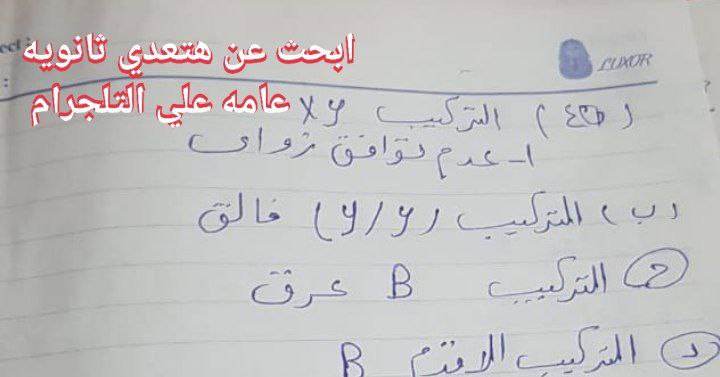 ect :
:
LUXOR
ابحث عن هتعدي ثانويه
عامه علي التلجرام
التركيب xy
١- عدم توافق زواى
(ب) التركيب (y/y) فالق
(ج) التركيب B عرق
(د) التركيب الاقدم B